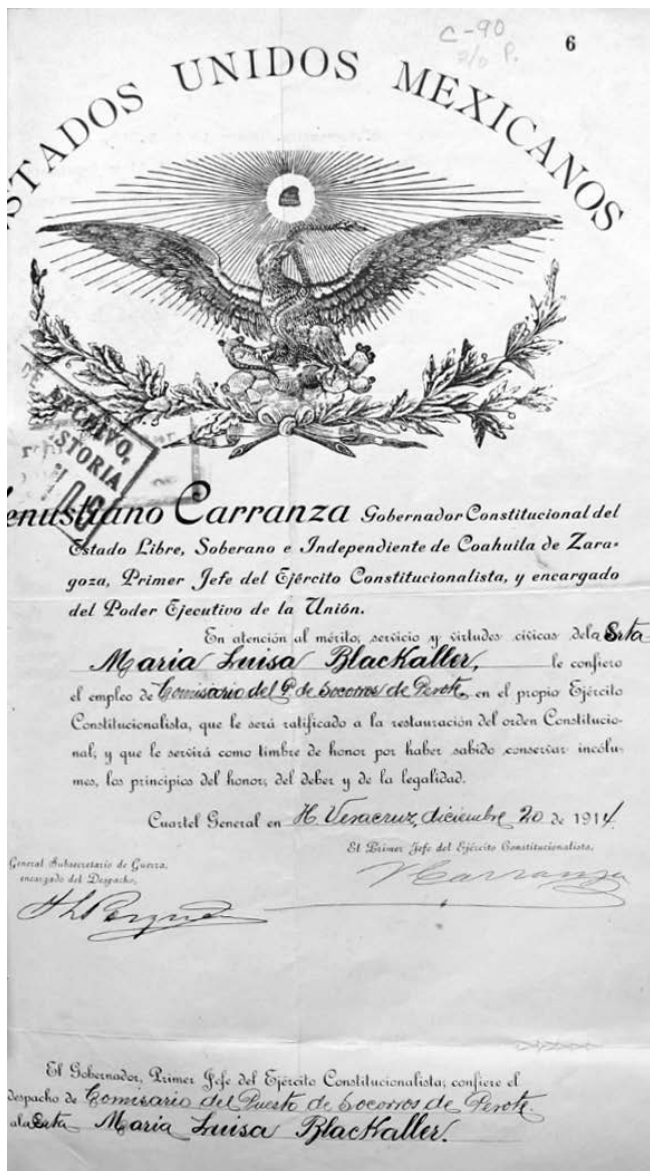 C-90
6
ESTADOS UNIDOS MEXICANOS
DE ARCHIVO,
STORIA
enustiano Carranza Gobernador Constitucional del
Estado Libre, Soberano e Independiente de Coahuila de Zara-
goza, Primer Jefe del Ejército Constitucionalista, y encargado
del Poder Ejecutivo de la Unión.
En atención al mérito, servicio y virtudes cívicas de la Srta
María Luisa Blackaller, le confiero
el empleo de Comisario del P. de Socorros de Perote, en el propio Ejército
Constitucionalista, que le será ratificado a la restauración del orden Constitucio-
nal; y que le servirá como timbre de honor por haber sabido conservar incólu-
mes, los principios del honor, del deber y de la legalidad.
Cuartel General en H. Veracruz, diciembre 20 de 1914.
El Primer Jefe del Ejército Constitucionalista,
General Subsecretario de Guerra,
encargado del Despacho,
VCarranza
El Gobernador, Primer Jefe del Ejército Constitucionalista; confiere el
despacho de Comisario del Puesto de Socorros de Perote.
a la Srta María Luisa Blackaller.